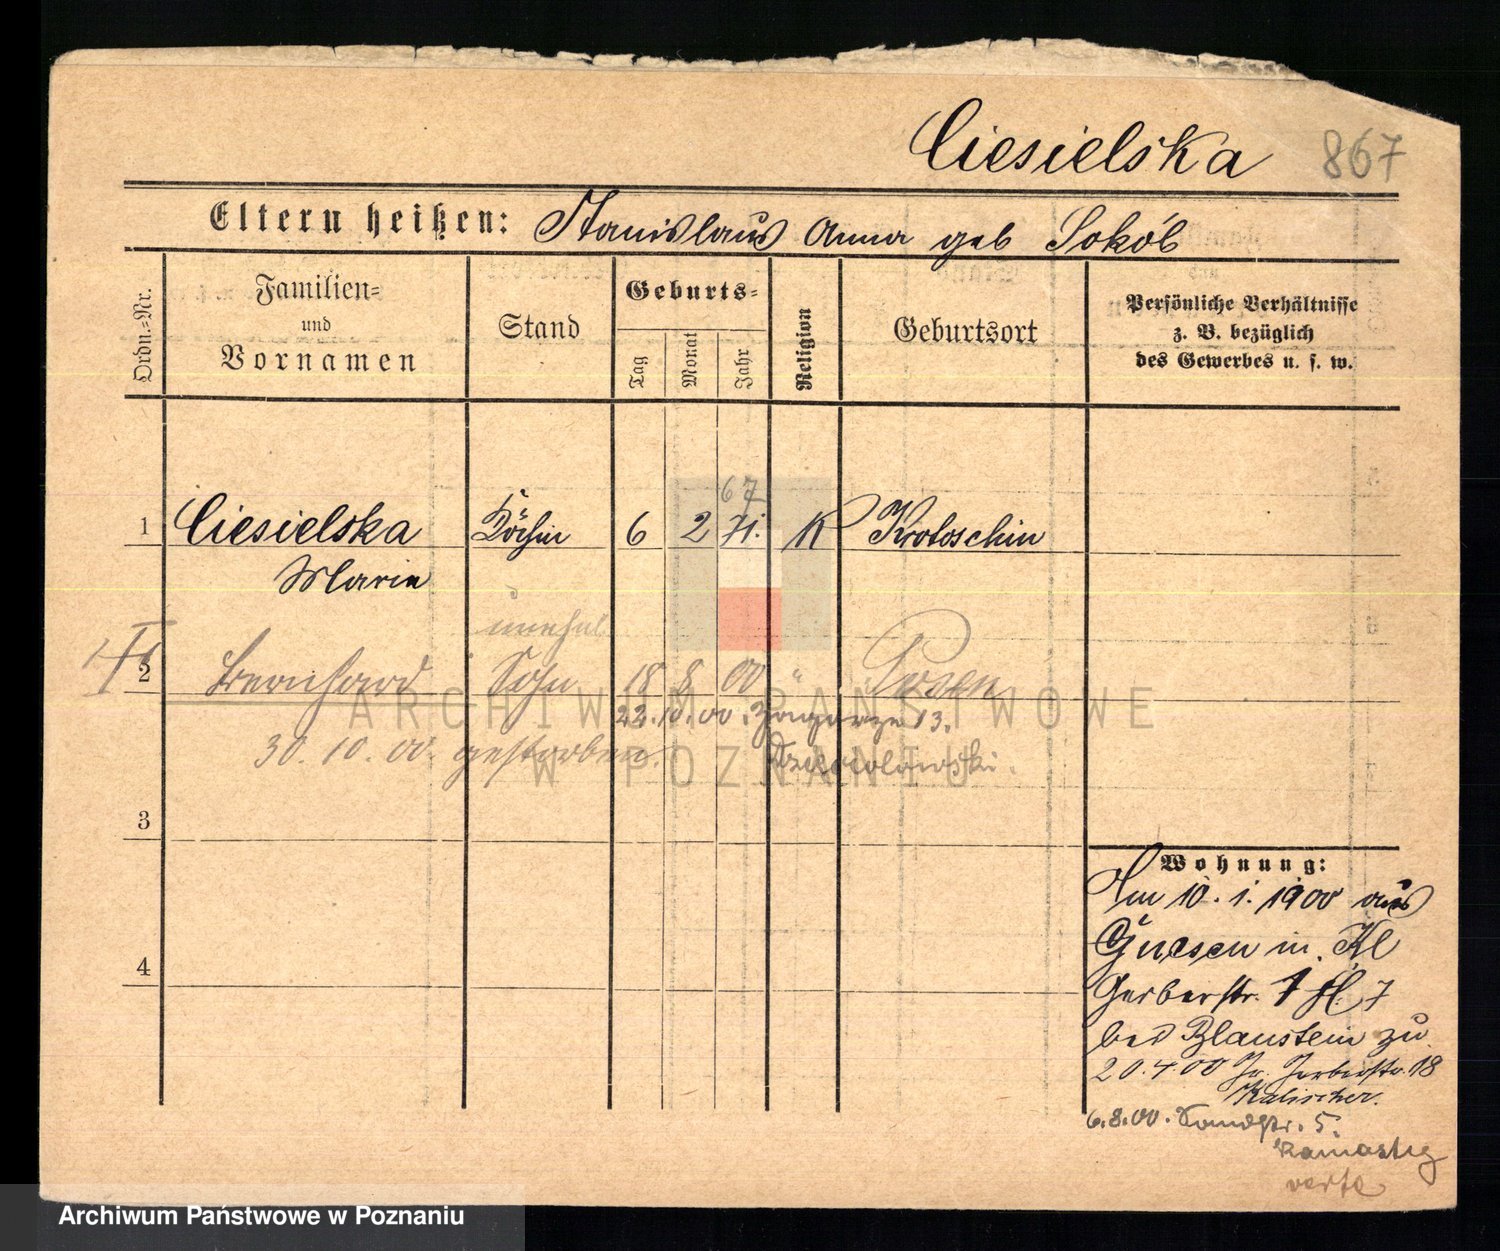 Ciesielska 867
Eltern heißen: Stanislaus Anna geb Sokób
Ordn.=Nr.
Familien=
und
Vornamen
Stand
Geburts=
Tag
Monat
Jahr
Religion
Geburtsort
Persönliche Verhältnisse
z. B. bezüglich
des Gewerbes u. s. w.
67
1 Ciesielska Köchin 6 2 71. K Krotoschin
Marie
unehel
2 Bernhard Sohn 18 8 00 " Posen
ARCHIWUM PAŃSTWOWE
22.10.00. 13.
30.10.00. gestorben.
W POZNANIU
3
4
Wohnung:
Am 10. 1. 1900 aus
Gnesen in. Kl
Gerberstr. 7
bei Blaustein zu
20.4.00 Gr. Gerberstr. 18
Kalischer.
6.8.00. Sandstr. 5.
verte
Archiwum Państwowe w Poznaniu